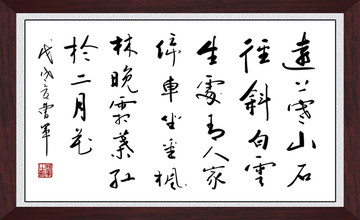 遠上寒山石
徑斜白雲
生處有人家
停車坐愛楓
林晚霜葉紅
於二月花
戊戌